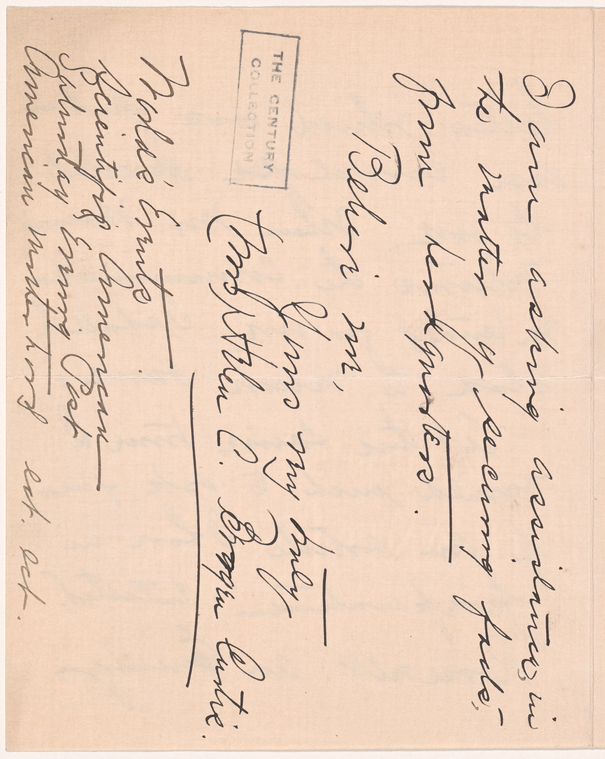 I am asking assistance, in
the matter of securing facts,
from headquarters.
Believe me,
Yours very truly
(Mrs) Alden C.
THE CENTURY
COLLECTION
World's Events
Scientific American
Saturday Evening Post
American Motherhood ect. ect.